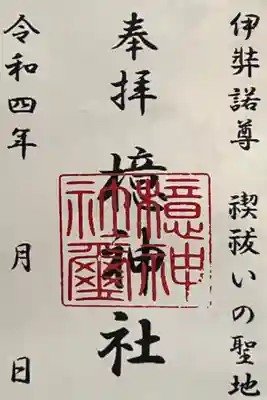 伊弉諾尊 禊祓いの聖地
奉拝 檍神社
檍神社璽
令和四年 月 日